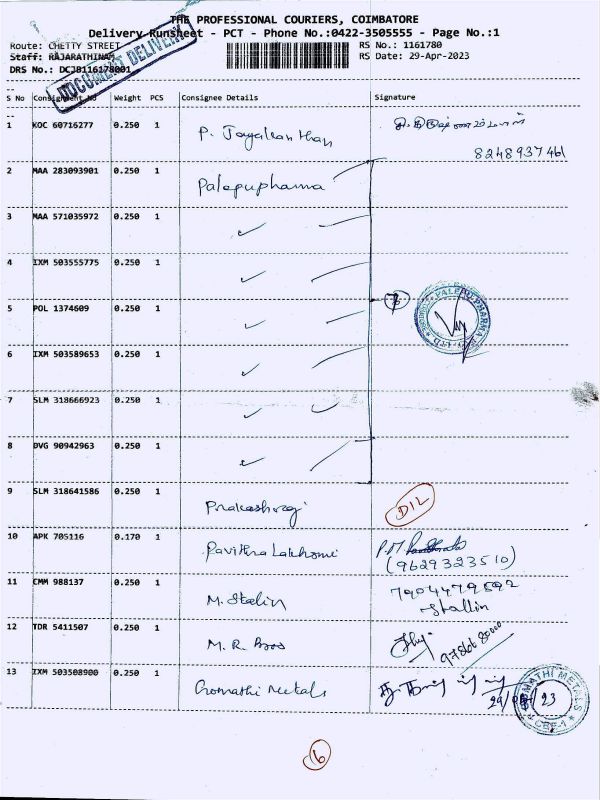 THE PROFESSIONAL COURIERS, COIMBATORE
Delivery Runsheet - PCT - Phone No.:0422-3505555 - Page No.:1
Route: CHETTY STREET RS No.: 1161780
Staff: RAJARATHINAM RS Date: 29-Apr-2023
DRS No.: DCJB116178001
DOCUMENT DELIVERY
S No Consignment No Weight PCS Consignee Details Signature
1 KOC 60716277 0.250 1 P. Jayakanthan
8248937461
2 MAA 283093901 0.250 1 Palepupharma
3 MAA 571035972 0.250 1 ✓
4 IXM 503555775 0.250 1 ✓
5 POL 1374609 0.250 1 ✓
PALEPU PHARMA
6 IXM 503589653 0.250 1 ✓
7 SLM 318666923 0.250 1 ✓
8 DVG 90942963 0.250 1 ✓
9 SLM 318641586 0.250 1 Prakashraj D1L
10 APK 705116 0.170 1 Pavithra Lakshmi P.M.
(9629323510)
11 CMM 988137 0.250 1 M. Stalin 7904479592
Stallin
12 TDR 5411507 0.250 1 M. R. Bros
13 IXM 503508900 0.250 1 Gomathi Metals
GOMATHI METALS
CBE-1
6